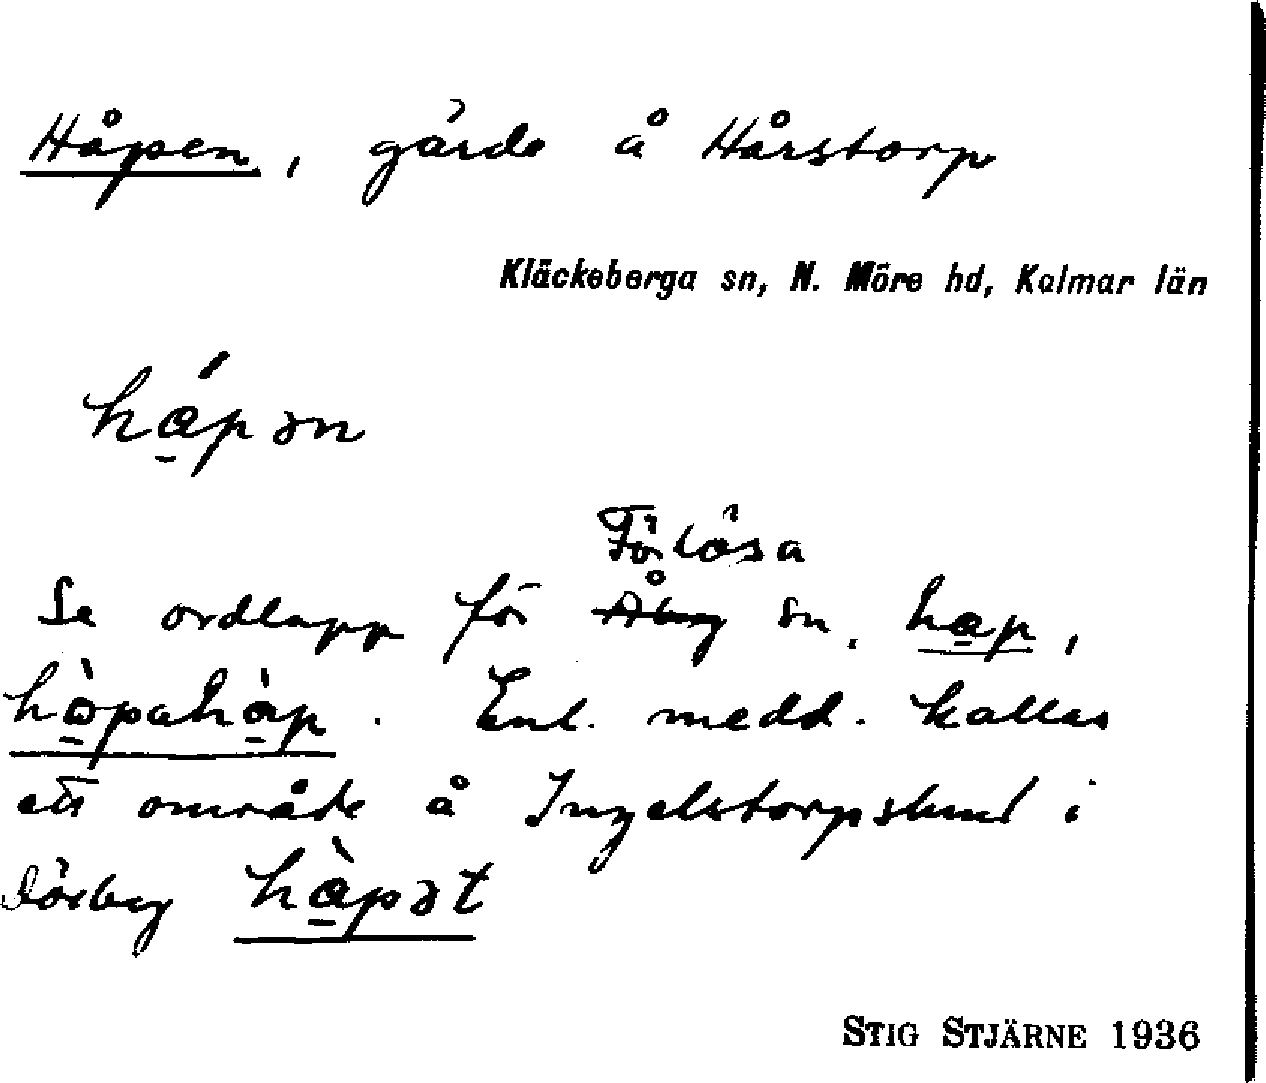 Håpen, gärde å Hårstorp
Kläckeberga sn, N. Möre hd, Kalmar län
hå̱pən
Förlösa
Se ordlapp för Åby sn. ha̱p,
hà̱pahà̱p. Enl. medd. kallas
ett område å Ingelstorpslund i
Dörby hà̱pət
STIG STJÄRNE 1936